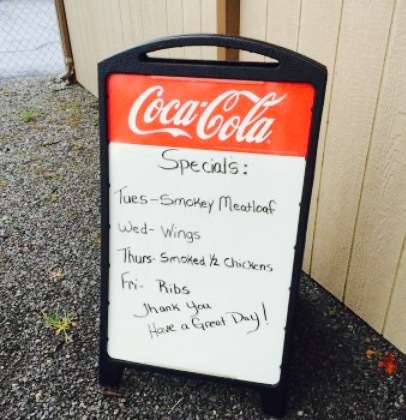 Coca-Cola
Specials:
Tues-Smokey Meatloaf
Wed-Wings
Thurs-Smoked ½ Chickens
Fri- Ribs
Thank You
Have a Great Day!